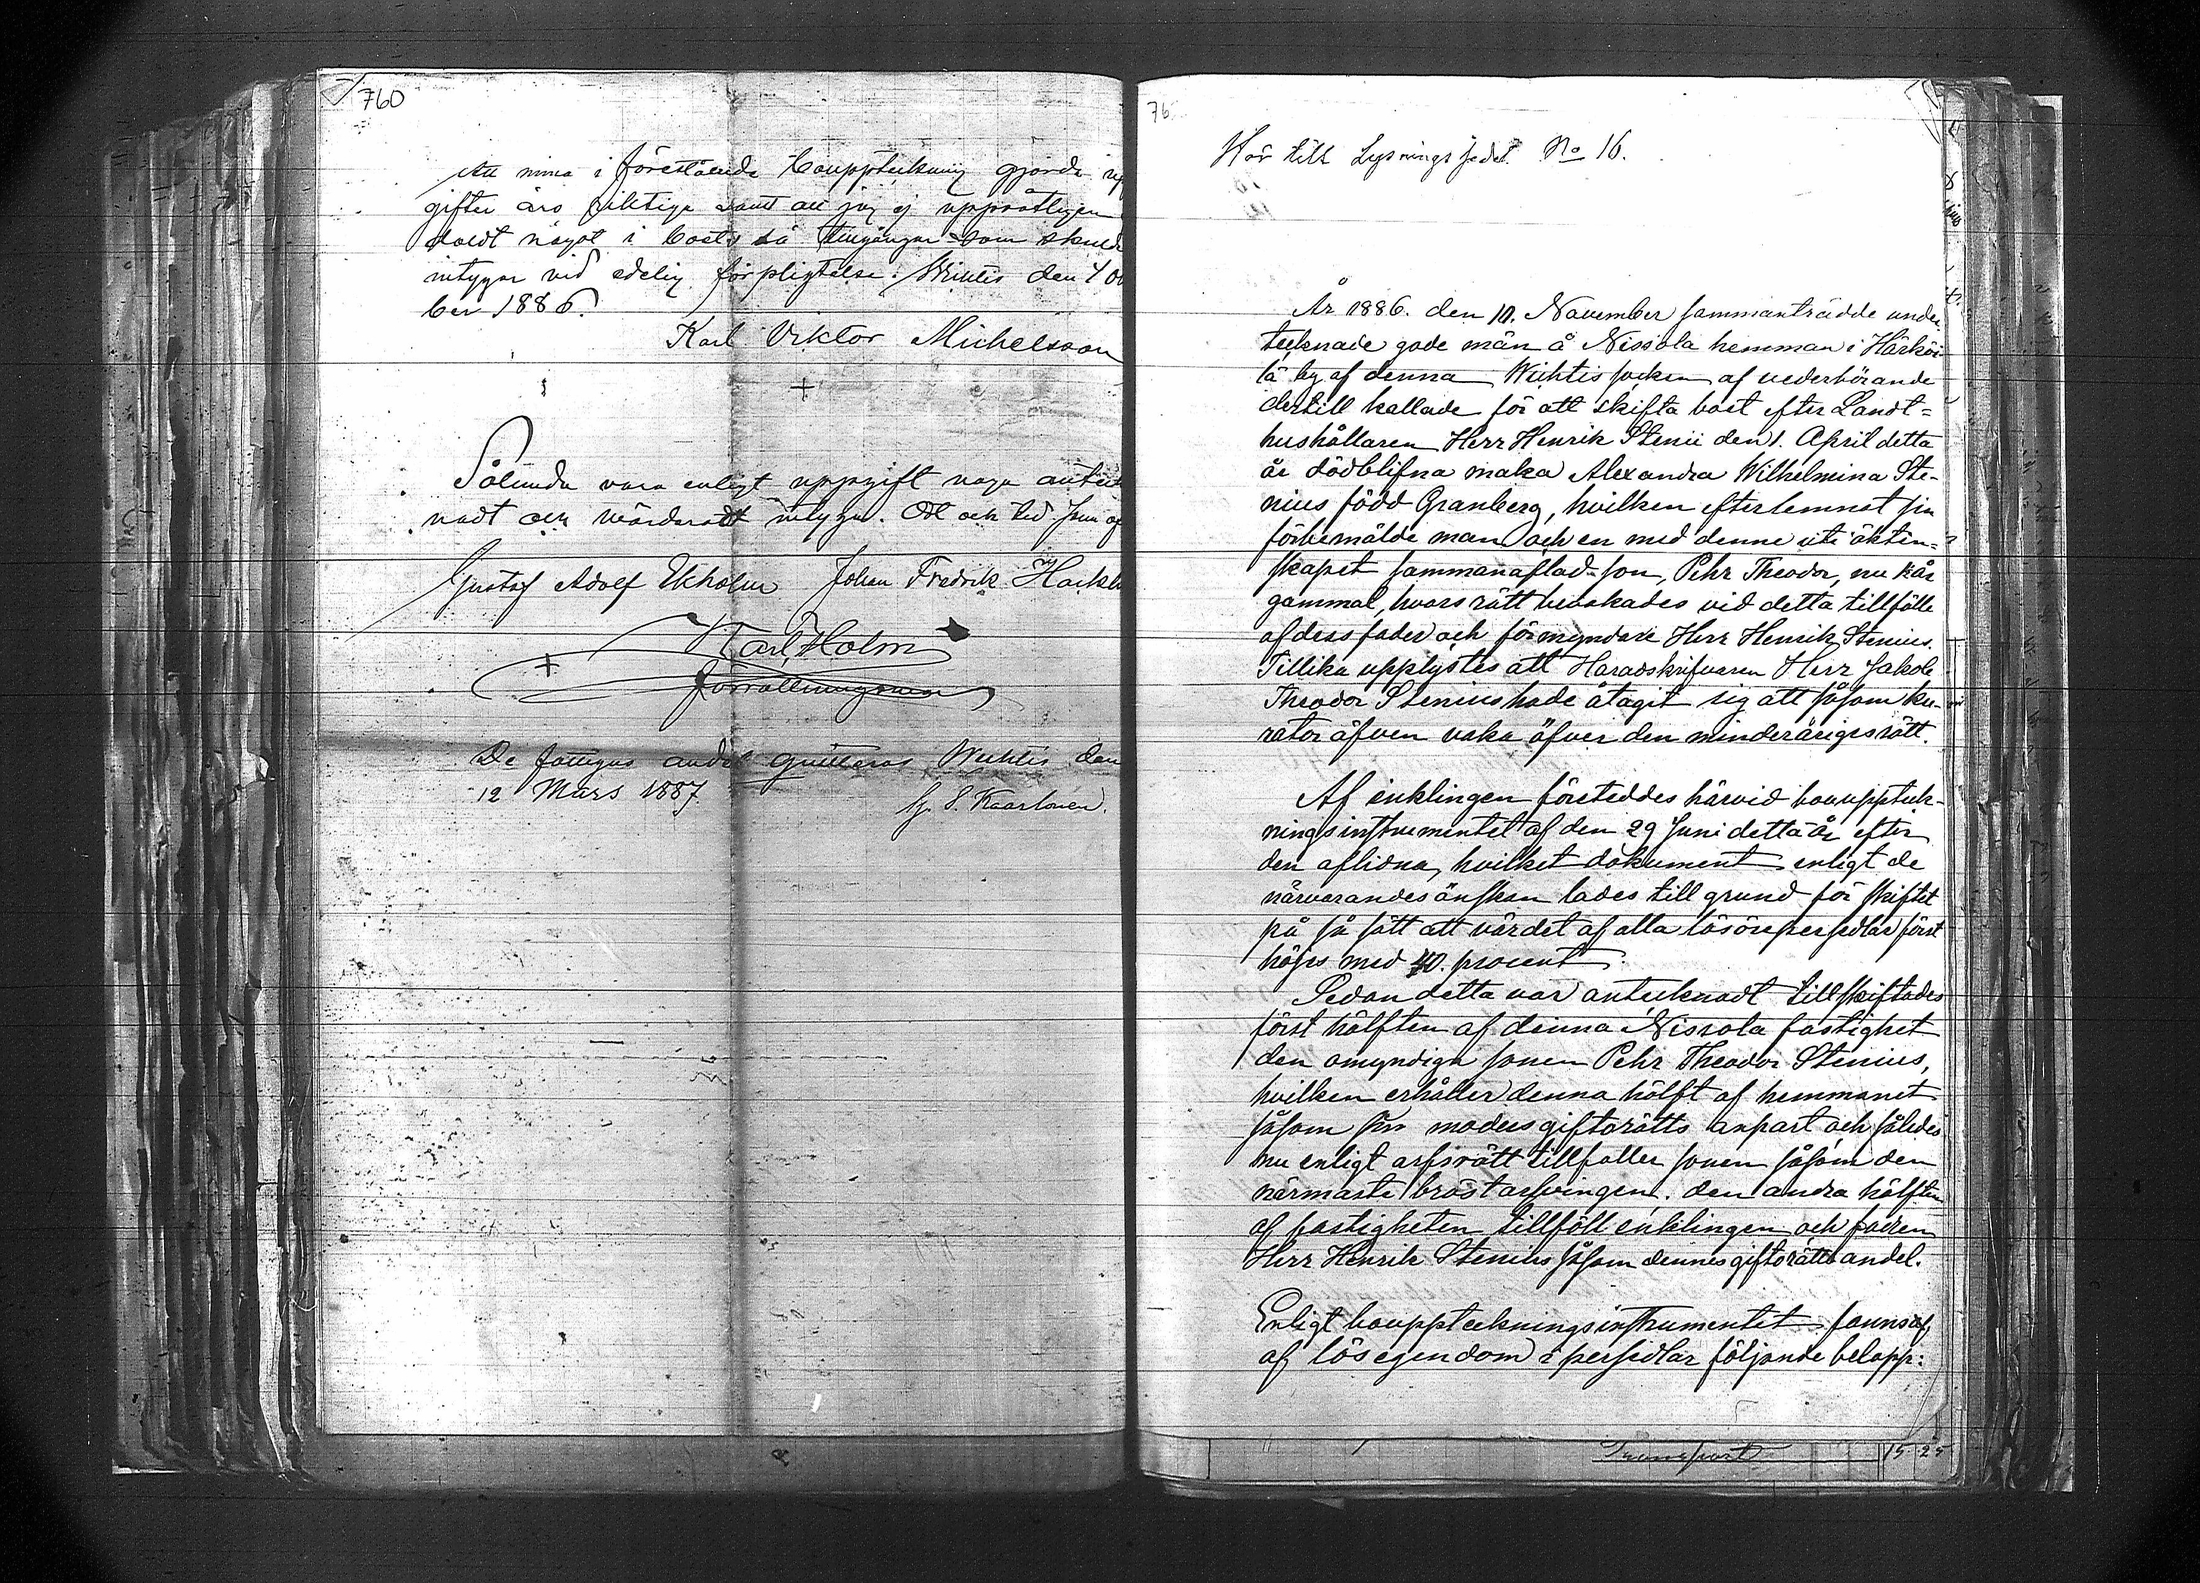 760
Att mina i förestående bouppteckning gjorda upp
gifter äro riktiga samt att jag ej uppsåtligen
doldt något i boets tillgångar som skuld
intygar vid edelig förpligtelse. Wichtis den 4
ber 1886.
Karl Viktor Michelsson
Sålunda vara enligt uppgift noga anteck
nadt och värderadt intyga. Ort och tid som of
Gustaf Adolf Ekholm Johan Fredrik
Karl Holm
förrättningsmän
De fattigas andel quitteras Wichtis den
12 Mars 1887.
S. Kaarlonen.
76
Hör till Lysnings sedel No 16.
År 1886. den 10. November sammanträdde under
tecknade gode män å Nissola hemman i Härköi
lä by af denna Wichtis socken af vederbörande
dertill kallade för att skifta boet efter Landt=
hushållaren Herr Henrik Stenii den 1. April detta
år dödblifna maka Alexandra Wilhelmina Ste-
nius född Granberg, hvilken efterlemnat sin
förbemälde man och en med denne uti äkten-
skapet sammanaflad son, Pehr Theodor, nu
gammal, hvars rätt bevakades vid detta tillfälle
af dess fader och förmyndare Herr Henrik Stenius.
Tillika upplystes att Häradskrifvaren Herr Jakob
Theodor Stenius hade åtagit sig att såsom ku-
rator äfven vaka öfver den minderåriges rätt.
Af enklingen företeddes härvid bouppteck-
ningsinstrumentet af den 29 Juni detta år efter
den aflidna, hvilket dokument enligt de
närvarandes önskan lades till grund för skiftet
på så sätt att värdet af alla lösörepersedlar först
höjes med 40. procent.
Sedan detta var antecknadt tillskiftades
först hälften af denna Nissola fastighet
den omyndiga sonen Pehr Theodor Stenius,
hvilken erhåller denna hälft af hemmanet
såsom sin moders giftorätts anpart och således
nu enligt arfsrätt tillfaller sonen såsom den
närmaste bröstarfvingen. den andra hälften
af fastigheten tillföll enklingen och fadren
Herr Henrik Stenius såsom dennes giftorätts andel.
Enligt bouppteckningsinstrumentet fanns
af lösegendom i persedlar följande belopp:
Transport 15 25